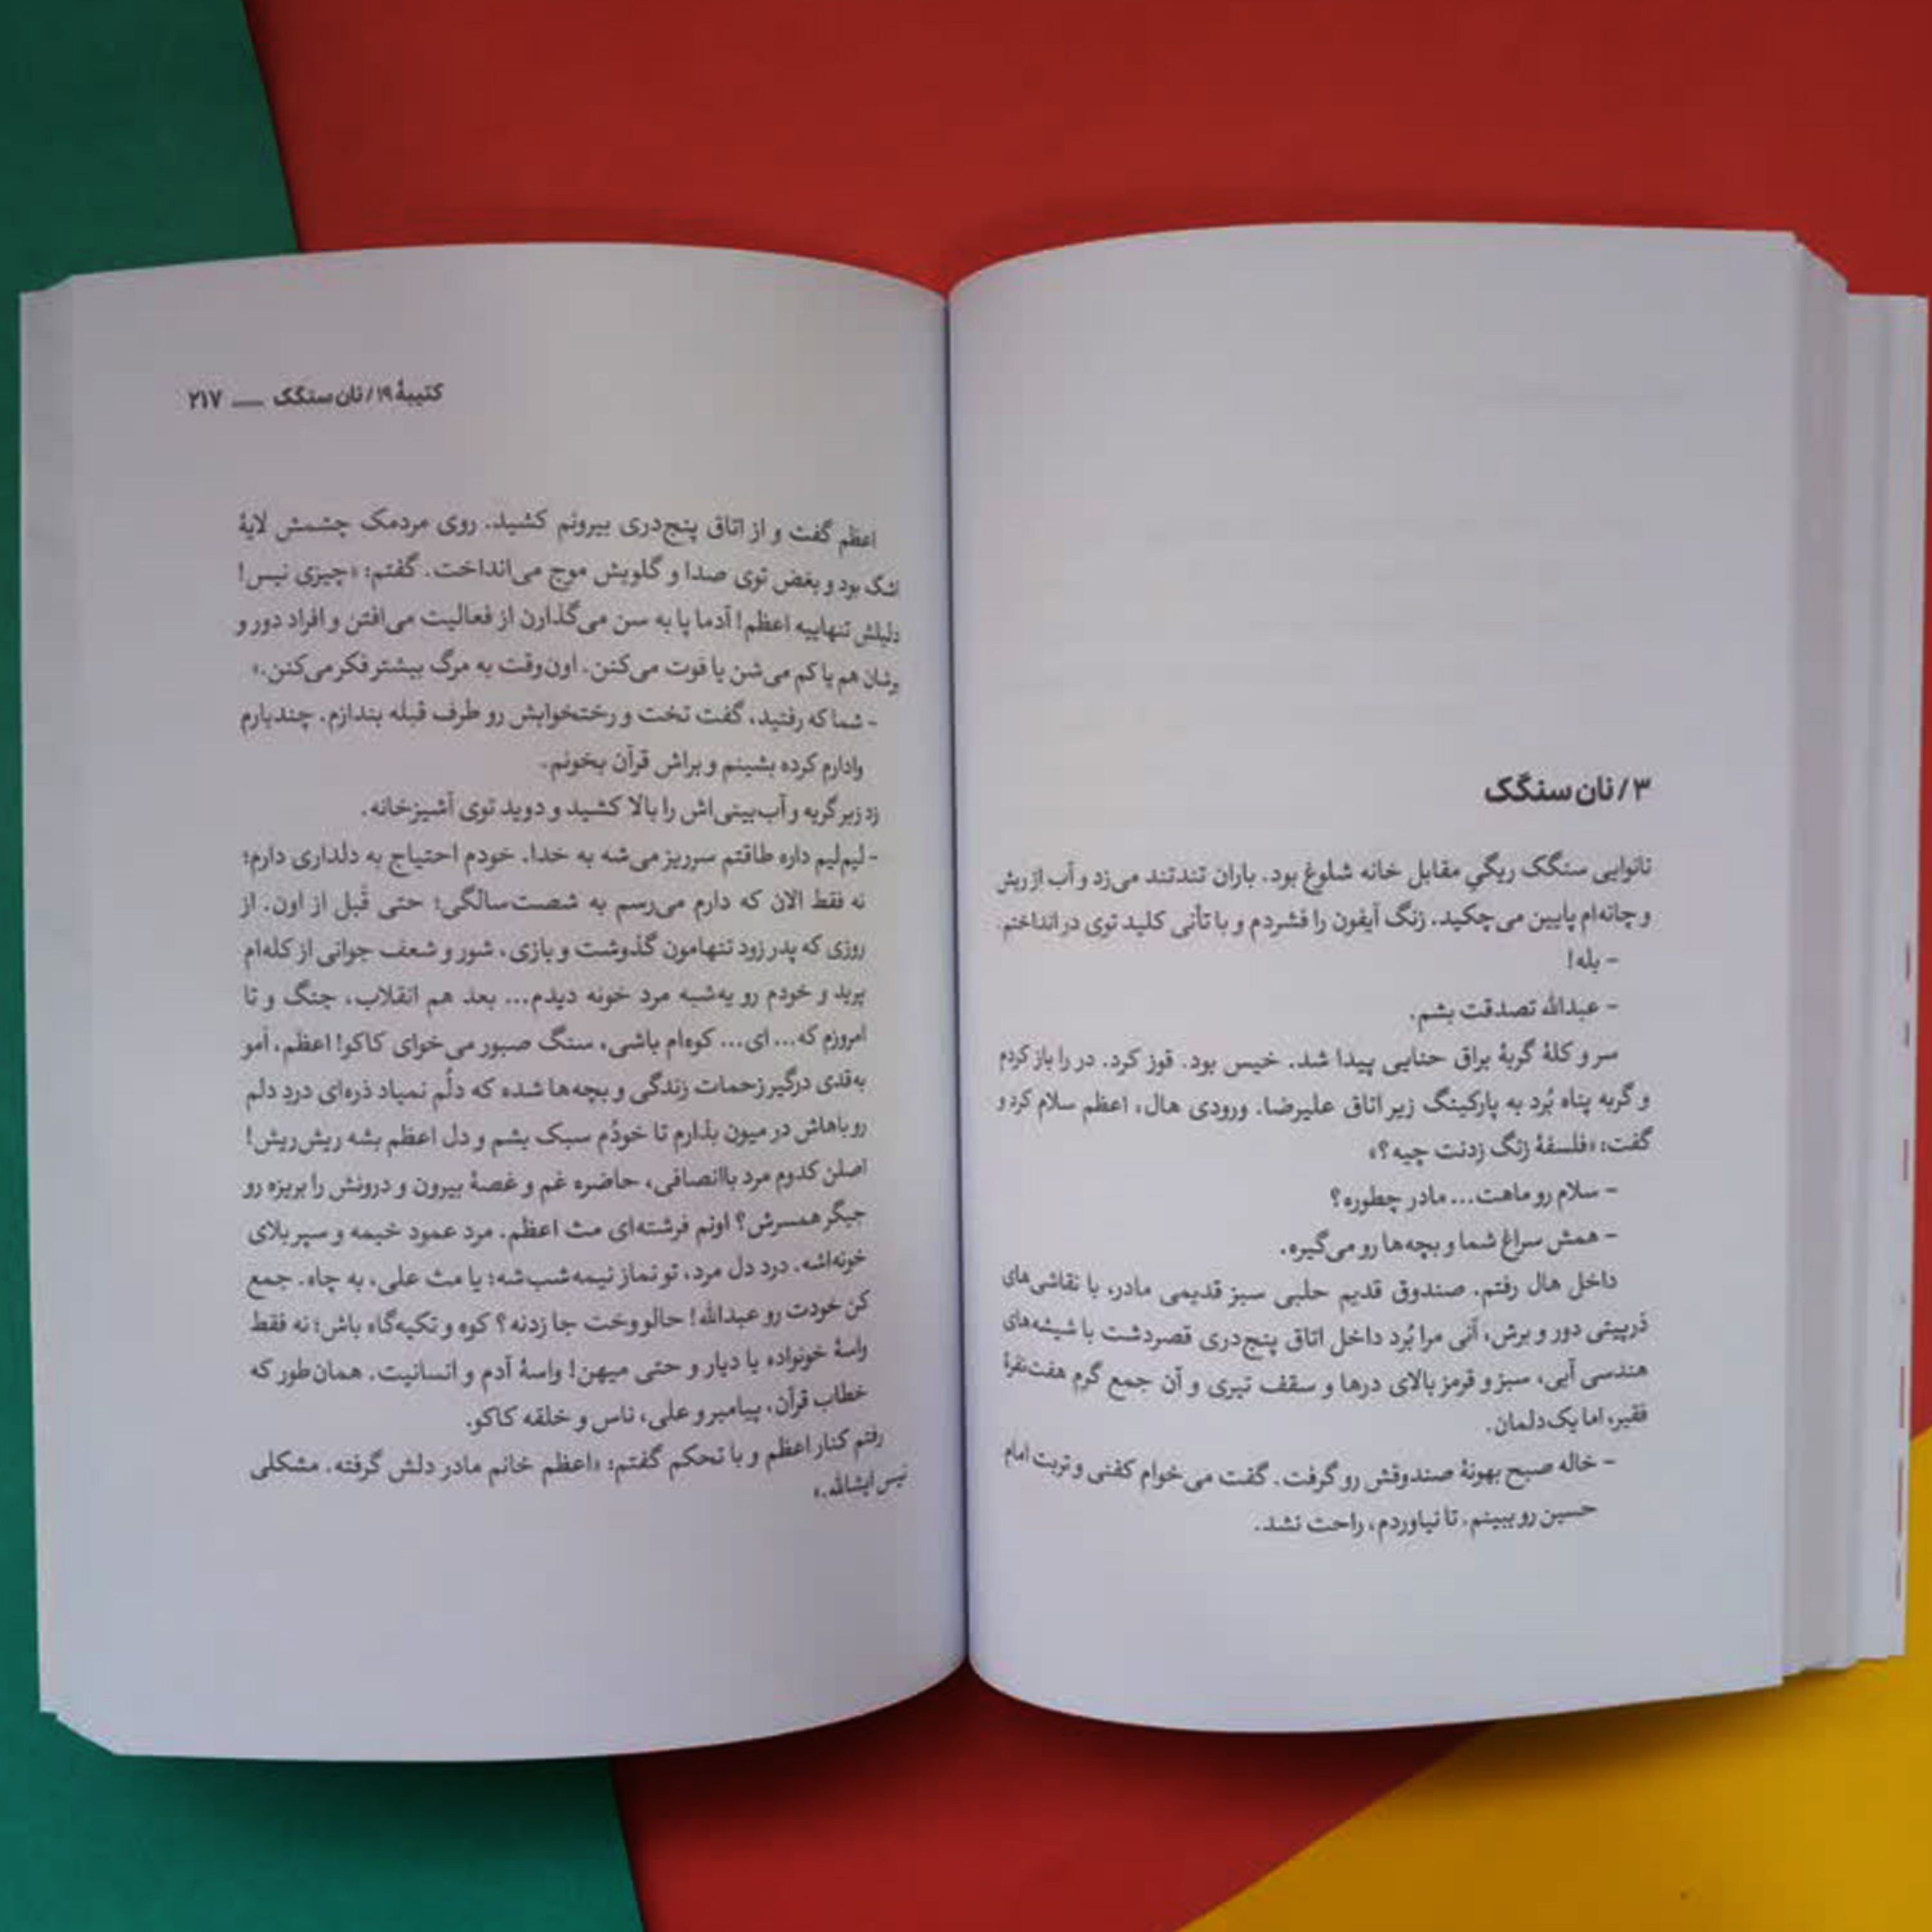 ۳ / نان سنگک
نانوایی سنگک ریگیِ مقابل خانه شلوغ بود. باران تندتند می‌زد و آب از ریش
و چانه‌ام پایین می‌چکید. زنگ آیفون را فشردم و با تأنی کلید توی در انداختم.
- بله!
- عبدالله تصدقت بشم.
سر و کلهٔ گربهٔ براق حنایی پیدا شد. خیس بود. قوز کرد. در را باز کردم
و گربه پناه بُرد به پارکینگ زیر اتاق علیرضا. ورودی هال، اعظم سلام کرد و
گفت: «فلسفهٔ زنگ زدنت چیه؟»
- سلام رو ماهت... مادر چطوره؟
- همش سراغ شما و بچه‌ها رو می‌گیره.
داخل هال رفتم. صندوق قدیم حلبی سبز قدیمی مادر، با نقاشی‌های
دُرپیتی دور و برش، آنی مرا بُرد داخل اتاق پنج‌دری قصردشت با شیشه‌های
هندسی آبی، سبز و قرمز بالای درها و سقف تیری و آن جمع گرم هفت‌نفرهٔ
فقیر، اما یک‌دلمان.
- خاله صبح بهونهٔ صندوقش رو گرفت. گفت می‌خوام کفنی و تربت امام
حسین رو ببینم. تا نیاوردم، راحت نشد.
کتیبهٔ ۱۹ / نان سنگک ــــ ۲۱۷
اعظم گفت و از اتاق پنج‌دری بیرونم کشید. روی مردمک چشمش لایهٔ
اشک بود و بغض توی صدا و گلویش موج می‌انداخت. گفتم: «چیزی نیس!
دلیلش تنهاییه اعظم! آدما پا به سن می‌گذارن از فعالیت می‌افتن و افراد دور و
برشان هم یا کم می‌شن یا فوت می‌کنن. اون‌وقت به مرگ بیشتر فکر می‌کنن.»
- شما که رفتید، گفت تخت و رختخوابش رو طرف قبله بندازم. چندبارم
وادارم کرده بشینم و براش قرآن بخونم.
زد زیر گریه و آب‌بینی‌اش را بالا کشید و دوید توی آشپزخانه.
- لیم‌لیم داره طاقتم سرریز می‌شه به خدا. خودم احتیاج به دلداری دارم؛
نه فقط الان که دارم می‌رسم به شصت‌سالگی؛ حتی قَبل از اون. از
روزی که پدر زود تنهامون گذوشت و بازی، شور و شعف جوانی از کله‌ام
پرید و خودم رو یه‌شبه مرد خونه دیدم... بعد هم انقلاب، جنگ و تا
امروزم که... ای... کوه‌ام باشی، سنگ صبور می‌خوای کاکو! اعظم، اَمو
به‌قدی درگیر زحمات زندگی و بچه‌ها شده که دلُم نمیاد ذره‌ای دردِ دلم
رو باهاش در میون بذارم تا خودُم سبک بشم و دل اعظم بشه ریش‌ریش!
اصلن کدوم مرد باانصافی، حاضره غم و غصهٔ بیرون و درونش را بریزه رو
جیگر همسرش؟ اونم فرشته‌ای مث اعظم. مرد عمود خیمه و سپر بلای
خونه‌اشه. درد دل مرد، تو نماز نیمه‌شب‌شه؛ یا مث علی، به چاه. جمع
کن خودت رو عبدالله! حالو وخت جا زدنه؟ کوه و تکیه‌گاه باش؛ نه فقط
واسهٔ خونواده یا دیار و حتی میهن! واسهٔ آدم و انسانیت. همان‌طور که
خطاب قرآن، پیامبر و علی، ناس و خلقه کاکو.
رفتم کنار اعظم و با تحکم گفتم: «اعظم خانم مادر دلش گرفته. مشکلی
نیس ایشالله.»